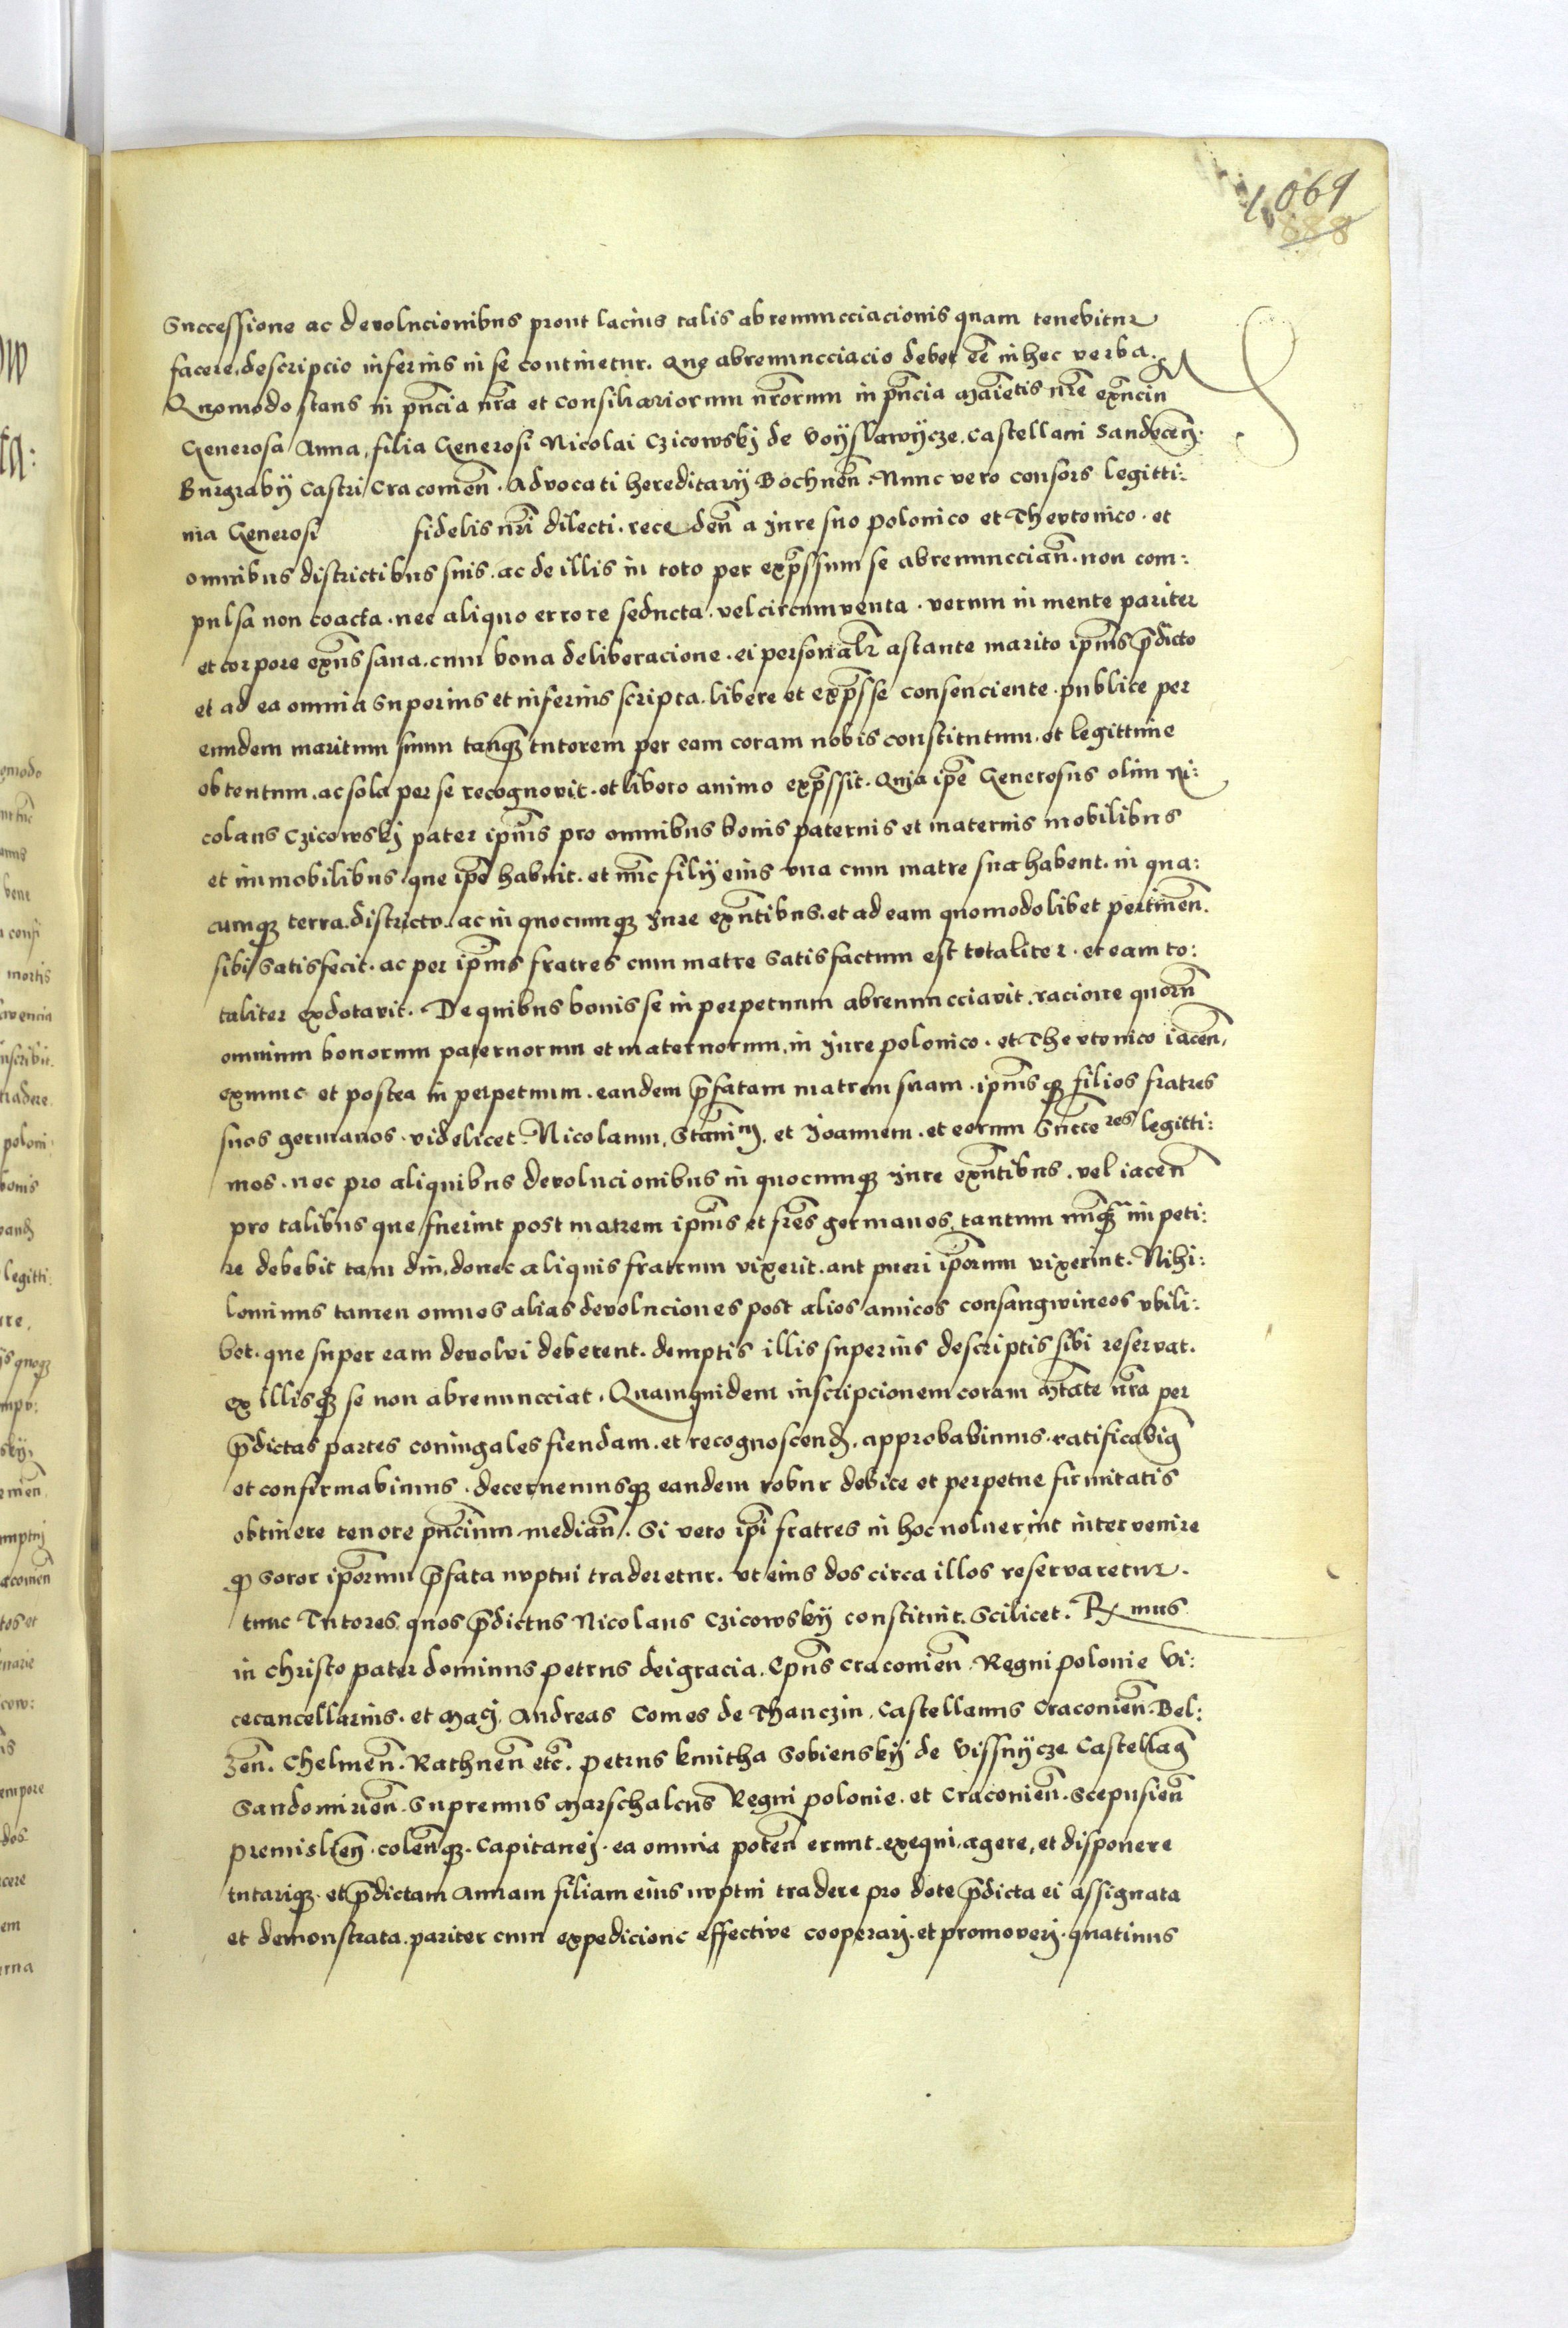 1069
888
Successione ac devolucionibus prout lacius talis abrenuncciacionis quam tenebitur
facere. descripcio inferius in se continetur. Que abrenuncciacio debet eē in hec verba.
Quomodo stans in pn̄cia nr̄a et Consiliariorum nr̄orum in pn̄cia Maiētis nr̄e exn̄cium
Generosa Anna, filia Generosi Nicolai Czicowskӱ de Voӱslawӱcze. Castellani Sandecen̄.
Burgrabӱ Castri Cracowien̄. Advocati hereditarӱ Bochnen̄. Nunc vero consors legitti:
ma Generosi fidelis nr̄i dilecti. receden̄ a Jure suo polonico et Thevtonico. et
omnibus districtibus suis. ac de illis in toto per exp̄ssum se abrenunccian̄. non com:
pulsa non coacta. nec aliquo errore seducta. vel circumventa. verum in mente pariter
et corpore exn̄s sana. cum bona deliberacione. ei personalr̄ astante marito ip̄ius p̄dicto
et ad ea omnia superius et inferius scripta. libere et exp̄sse consenciente. publice per
eundem maritum suum tanq̄ tutorem per eam coram nobis constitutum. et legittime
obtentum. ac sola per se recognovit. et libero animo exp̄ssit. Quia ip̄e Generosus olim Ni:
colaus Czicowskӱ pater ip̄ius pro omnibus bonis paternis et maternis mobilibus
et immobilibus que ip̄e habuit. et nūc filӱ eius una cum matre sua habent. in qua:
cumq; terra. districtu. ac in quocumq; Jure exn̄tibus. et ad eam quomodolibet pertinen̄.
sibi satisfecit. ac per ip̄ius fratres cum matre satisfactum est totaliter. et eam to:
taliter exdotavit. De quibus bonis se in perpetuum abrenuncciavit. racione quorū
omnium bonorum paternorum et maternorum, in Jure polonico. et Thevtonico iacen̄,
exnunc et postea in perpetuum. eandem p̄fatam matrem suam. ip̄iusq; filios fratres
suos germanos. videlicet Nicolaum, Stanīm. et Joannem. et eorum Succeres legitti:
mos. nec pro aliquibus devolucionibus in quocumq; Jure exn̄tibus. vel iacen̄
pro talibus que fuerint post matrem ip̄ius et fr̄es germanos, tantum nūq̄ impeti:
re debebit tam diu, donec aliquis fratrum vixerit. aut pueri ip̄orum vixerint. Nihi:
lominus tamen omnes alias devoluciones post alios amicos consangwineos vbili:
bet. que super eam devolvi deberent. demptis illis superius descriptis sibi reservat.
ex illisq; se non abrenuncciat. Quamquidem inscripcionem coram Mtāte nr̄a per
p̄dictas partes coniugales fiendam. et recognoscend̄. approbabimus. ratificabim̄
et confirmabimus. decernemusq; eandem robur debite et perpetue firmitatis
obtinere tenore pn̄cium median̄. Si vero ip̄i fratres in hoc noluerint intervenire
q̄ soror ip̄orum p̄fata nuptui traderetur. vt eius dos circa illos reservaretur.
tunc Tutores. quos p̄dictus Nicolaus Czicowskӱ constituit. Scilicet. Rxmus
in Christo pater dominus petrus dei gracia. Ep̄us Cracowien̄. Regni polonie Vi:
cecancellarius. et Mag. Andreas Comes de Thanczin. Castellanus Cracowien̄. Bel:
zen̄. Chelmen̄. Rathnen̄ etc̄. petrus kmitha Sobienskӱ de Vissnӱcze Castellan̄
Sandomirien̄. Supremus Marschalcus Regni polonie. et Cracowien̄. Scepusien̄
premislien̄. colen̄q;. Capitanei. ea omnia poten̄ erunt. exequi, agere, et disponere
tutariq; et p̄dictam Annam filiam eius nuptui tradere pro dote p̄dicta ei assignata
et demonstrata. pariter cum expedicione effective cooperari. et promoveri. quatinus